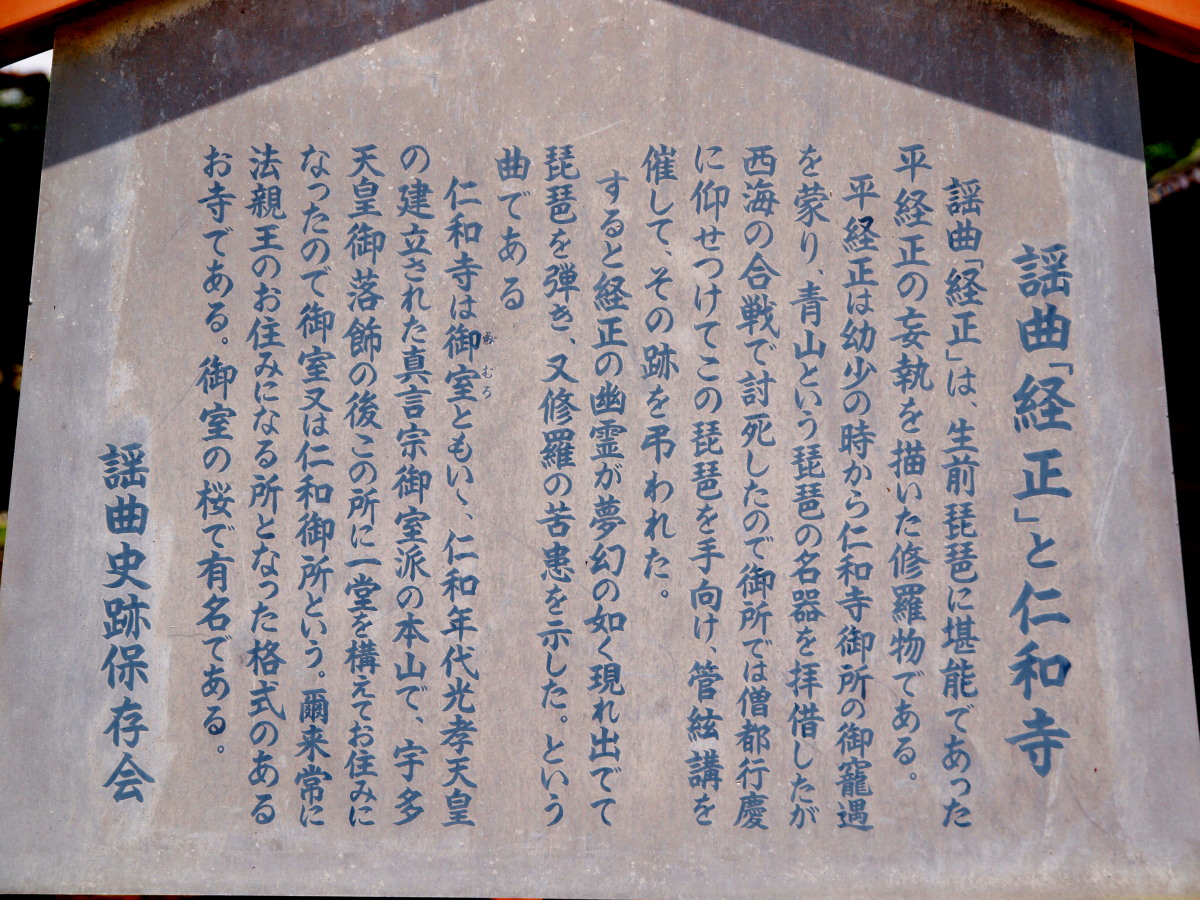 謡曲「経正」と仁和寺
謡曲「経正」は、生前琵琶に堪能であった
平経正の妄執を描いた修羅物である。
平経正は幼少の時から仁和寺御所の御寵遇
を蒙り、青山という琵琶の名器を拝借したが
西海の合戦で討死したので御所では僧都行慶
に仰せつけてこの琵琶を手向け、管絃講を
催して、その跡を弔われた。
すると経正の幽霊が夢幻の如く現れ出でて
琵琶を弾き、又修羅の苦患を示した。という
曲である
仁和寺は御室ともいゝ、仁和年代光孝天皇
おむろ
の建立された真言宗御室派の本山で、宇多
天皇御落飾の後この所に一堂を構えてお住みに
なったので御室又は仁和御所という。爾来常に
法親王のお住みになる所となった格式のある
お寺である。御室の桜で有名である。
謡曲史跡保存会